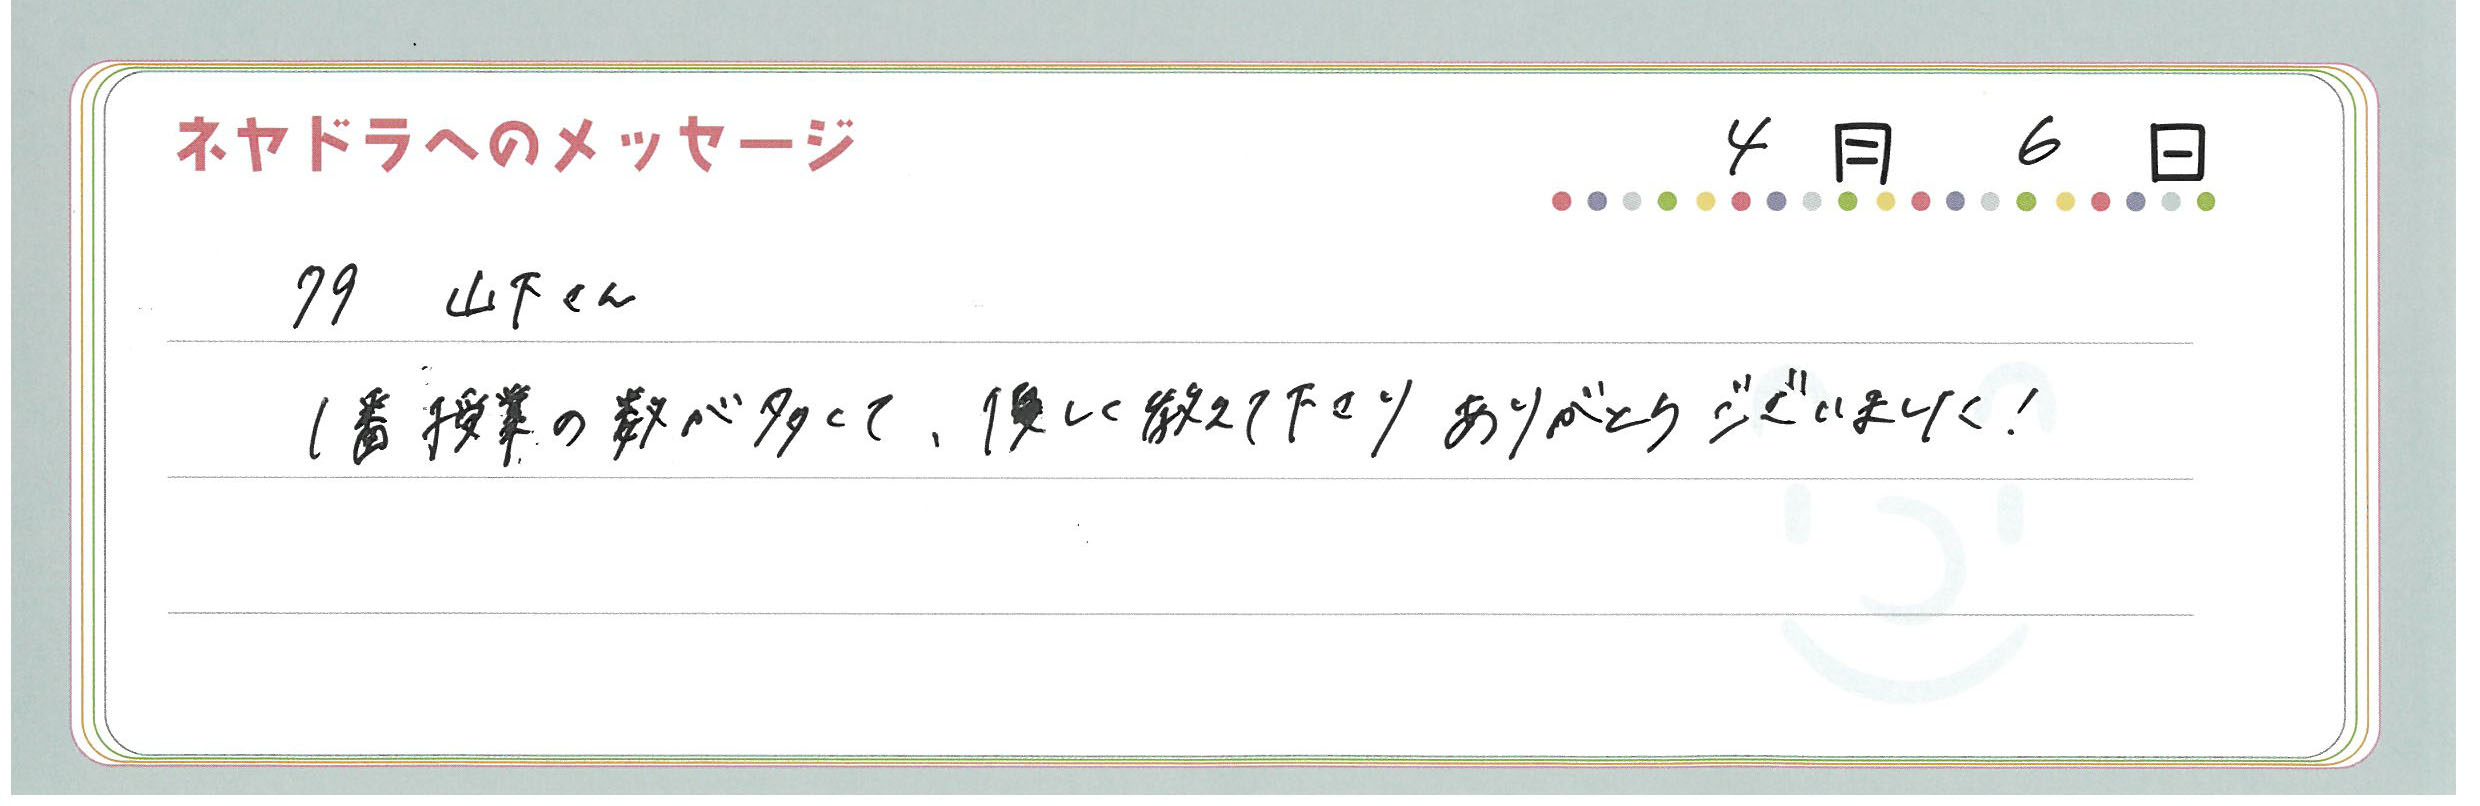 ネヤドラへのメッセージ
4月 6日
79 山下さん
1番授業の数が多くて、優しく教えて下さりありがとうございました!